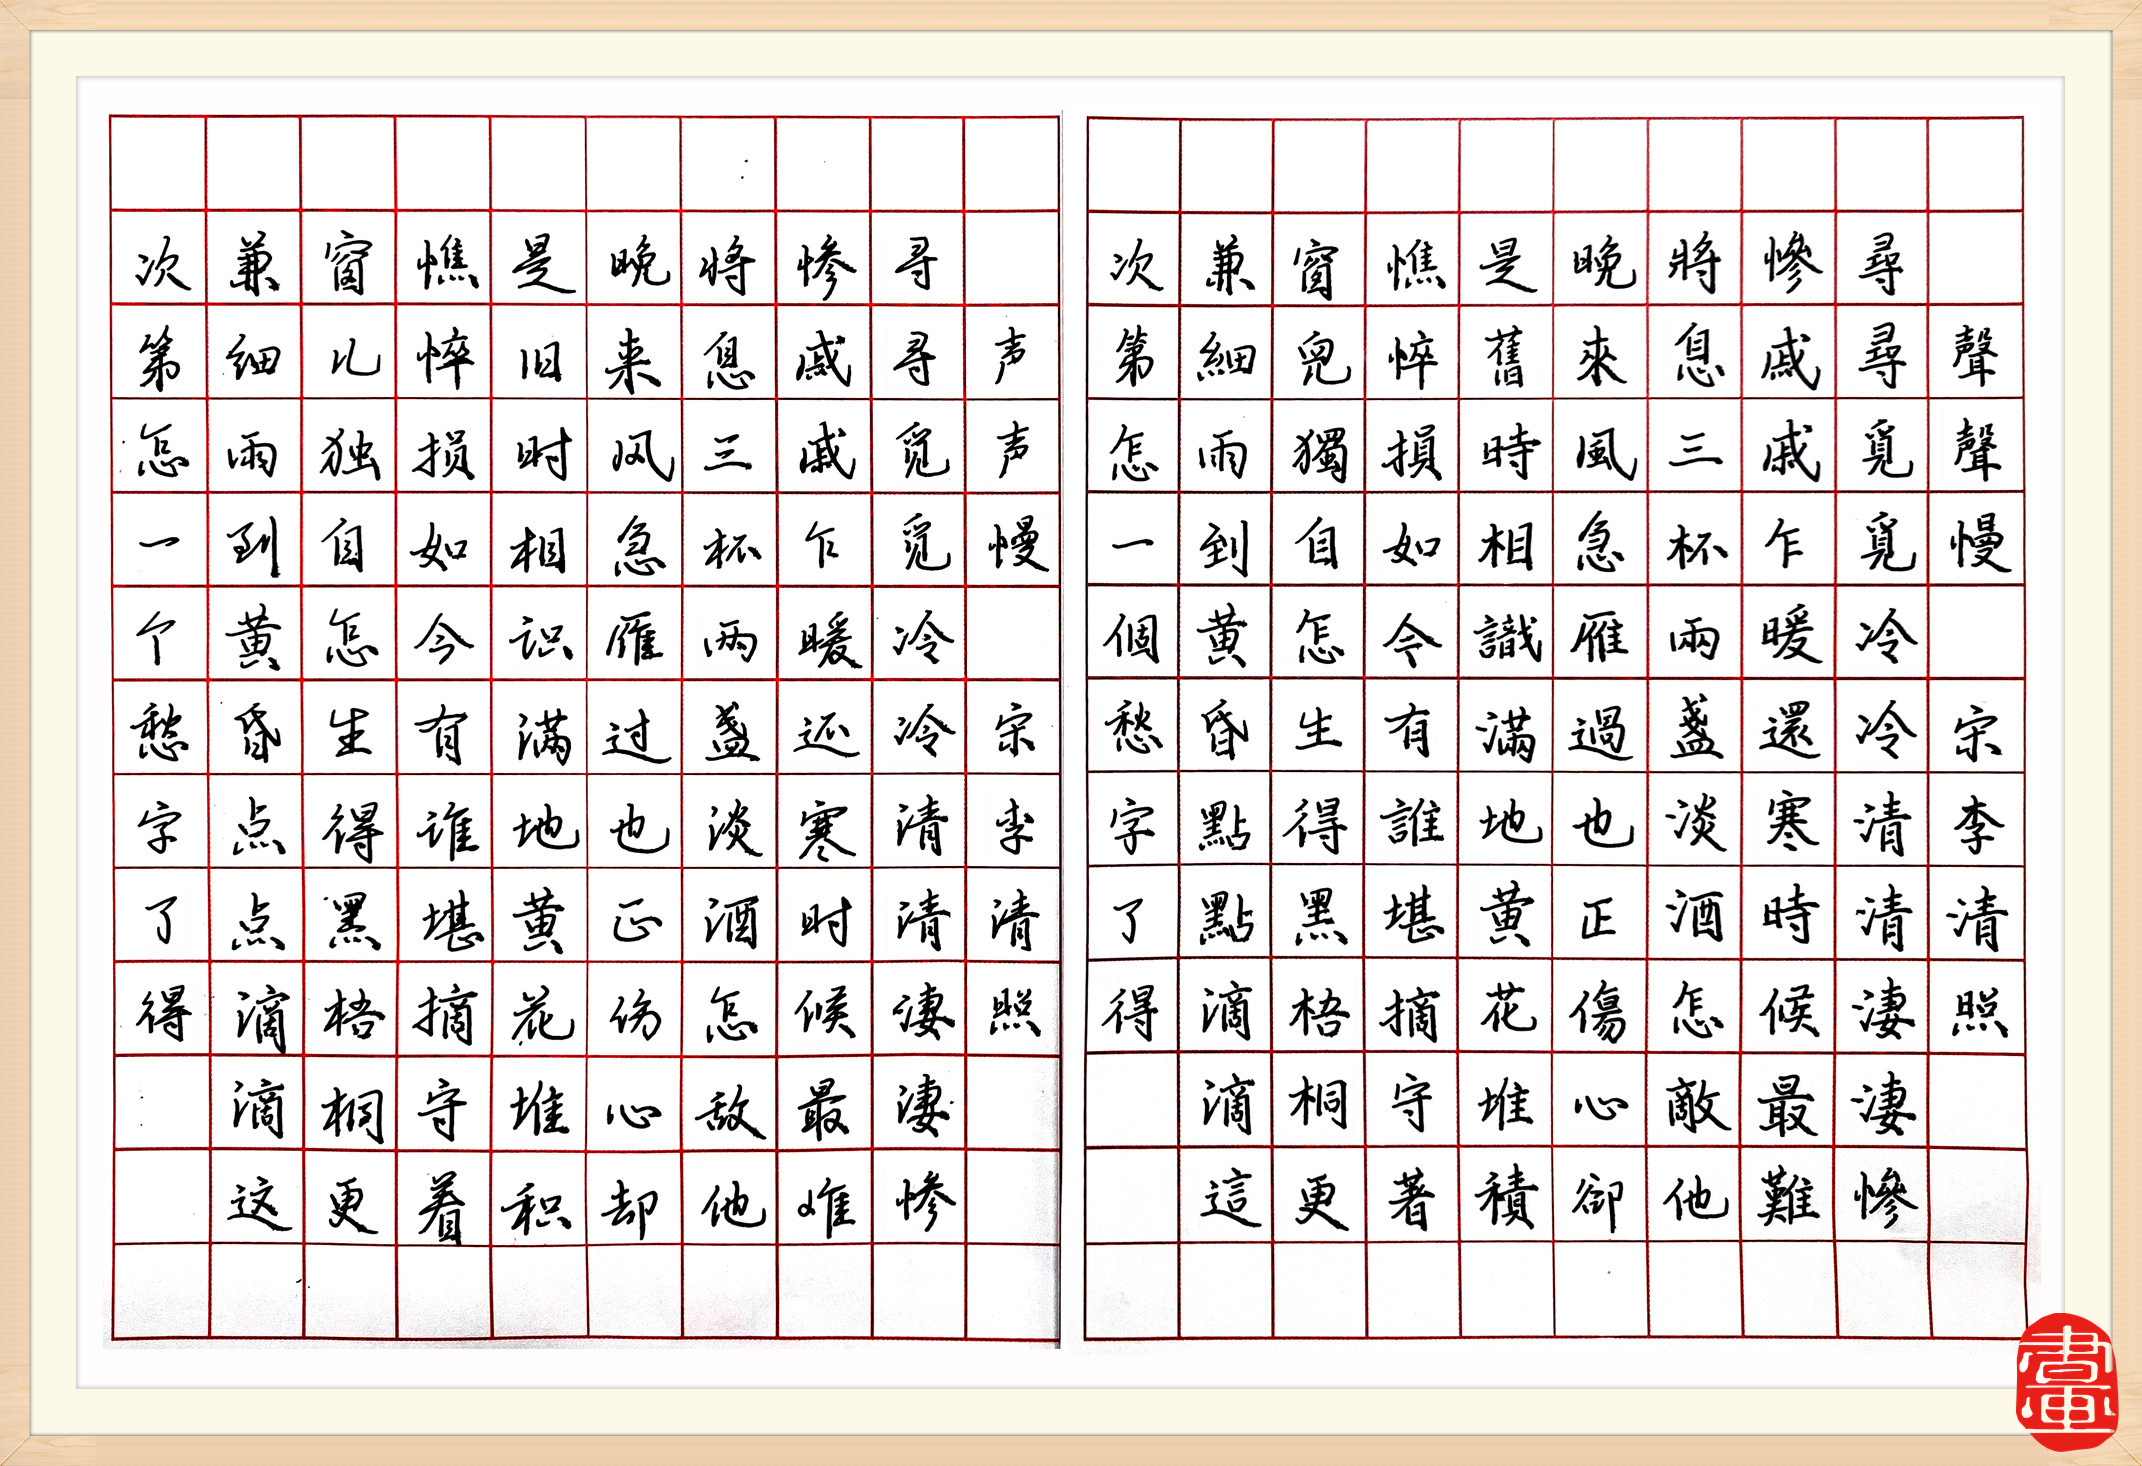 聲聲慢 宋李清照
尋尋覓覓冷冷清清淒淒慘
慘戚戚乍暖還寒時候最難
將息三杯兩盞淡酒怎敵他
晚來風急雁過也正傷心卻
是舊時相識滿地黃花堆積
憔悴損如今有誰堪摘守著
窗兒獨自怎生得黑梧桐更
兼細雨到黃昏點點滴滴這
次第怎一個愁字了得
声声慢 宋李清照
寻寻觅觅冷冷清清淒淒惨
惨戚戚乍暖还寒时候最难
将息三杯两盏淡酒怎敌他
晚来风急雁过也正伤心却
是旧时相识满地黄花堆积
憔悴损如今有谁堪摘守着
窗儿独自怎生得黑梧桐更
兼细雨到黄昏点点滴滴这
次第怎一个愁字了得